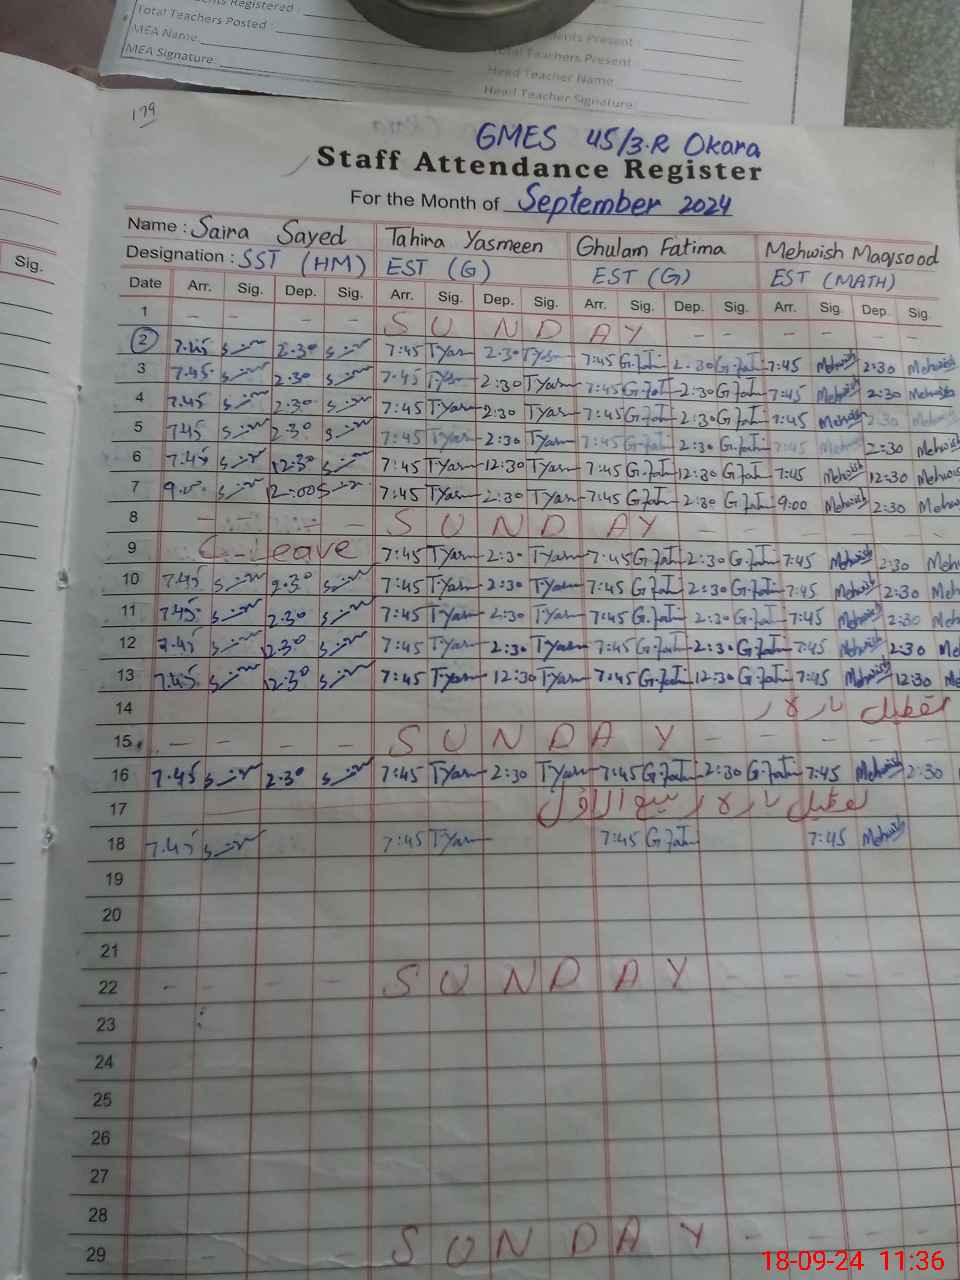 nts Registered :
Total Teachers Posted :
MEA Name
MEA Signature
nts Present :
Total Teachers Present
Head Teacher Name
Head Teacher Signature:
179
GMES 45/3.R Okara
Staff Attendance Register
For the Month of September 2024
Sig.
Name : Saira Sayed Tahira Yasmeen Ghulam Fatima Mehwish Maqsood
Designation : SST (HM) EST (G) EST (G) EST (MATH)
Date Arr. Sig. Dep. Sig. Arr. Sig. Dep. Sig. Arr. Sig. Dep. Sig. Arr. Sig. Dep. Sig.
1 - - - - S U N D A Y - - - -
2 7.45 2.30 7:45 TYas 2:30 TYas 7:45 G.Fati 2:30 G.Fati 7:45 Mehwish 2:30 Mehwish
3 7.45 2.30 7:45 TYas 2:30 TYas 7:45 G.Fati 2:30 G.Fati 7:45 Mehwish 2:30 Mehwish
4 7.45 2.30 7:45 TYas 2:30 TYas 7:45 G.Fati 2:30 G.Fati 7:45 Mehwish 2:30 Mehwish
5 7.45 2.30 7:45 TYas 2:30 TYas 7:45 G.Fati 2:30 G.Fati 7:45 Mehwish 2:30 Mehwish
6 7.45 12.30 7:45 TYas 12:30 TYas 7:45 G.Fati 12:30 G.Fati 7:45 Mehwish 12:30 Mehwis
7 12:00 7:45 TYas 2:30 TYas 7:45 G.Fati 2:30 G.Fati 9:00 Mehwish 2:30 Mehwis
8 - - - - S U N D A Y - - - -
9 C-Leave 7:45 TYas 2:30 TYas 7:45 G.Fati 2:30 G.Fati 7:45 Mehwish 2:30 Meh
10 7.45 2.30 7:45 TYas 2:30 TYas 7:45 G.Fati 2:30 G.Fati 7:45 Mehwish 2:30 Meh
11 7.45 2.30 7:45 TYas 2:30 TYas 7:45 G.Fati 2:30 G.Fati 7:45 Mehwish 2:30 Meh
12 7.45 2.30 7:45 TYas 2:30 TYas 7:45 G.Fati 2:30 G.Fati 7:45 Mehwish 2:30 Me
13 7.45 12.30 7:45 TYas 12:30 TYas 7:45 G.Fati 12:30 G.Fati 7:45 Mehwish 12:30 M
14 تعطیل
15 - - - - S U N D A Y - - - -
16 7.45 2.30 7:45 TYas 2:30 TYas 7:45 G.Fati 2:30 G.Fati 7:45 Mehwish 2:30
17 تعطیل ربیع الاول
18 7.45 7:45 TYas 7:45 G.Fati 7:45 Mehwish
19
20
21
22 - - - - S U N D A Y - - - -
23
24
25
26
27
28
29 - - - - S U N D A Y - -
18-09-24 11:36